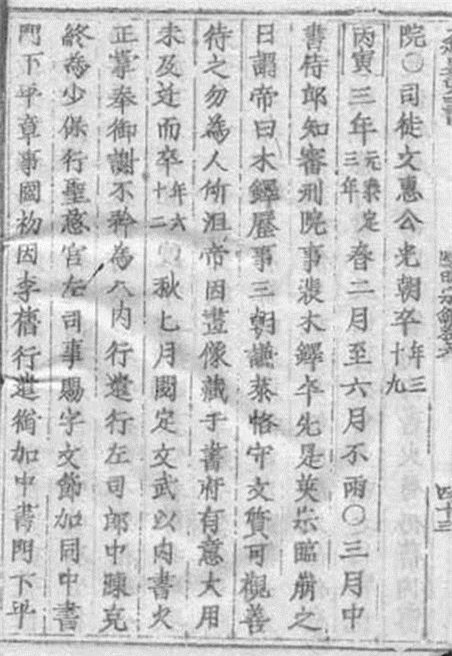 四十三
院○司徒文惠公光朝卒年三十九
丙寅三年元泰定三年春二月至六月不雨○三月中
書侍郎知審刑院事裴木鐸卒先是英宗臨崩之
日謂帝曰木鐸歷事三朝謙恭恪守文質可觀善
待之勿為人所沮帝因畫像藏于書府有意大用
未及迁而卒年六十二秋七月閱定文武以内書火
正掌奉御謝不矜為入内行遣行左司郎中陳克
終為少保行聖慈宮左司事賜字文節加同中書
門下平章事國初因李舊行遣銜加中書門下平